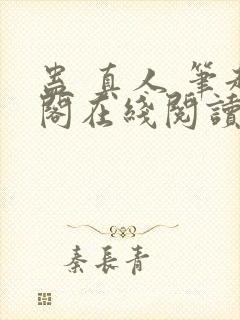 蛊 真人 筆
閣在綫閱讀
秦長青